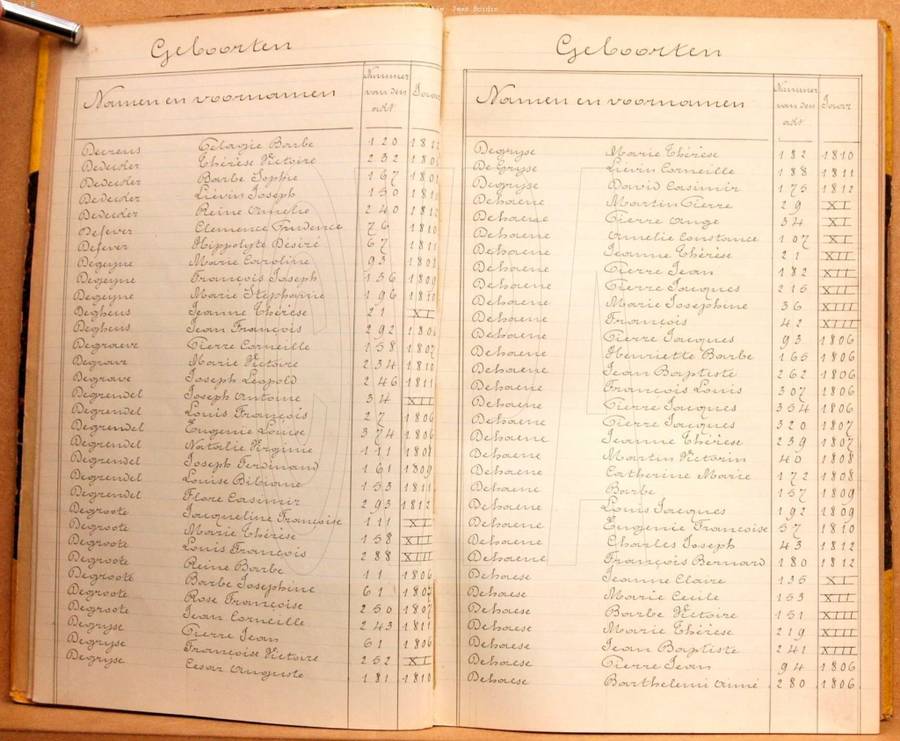 Geboorten
Namen en voornamen Nummer van den akt Jaar
Decreus Pélagie Barbe 120
Dedeider Thérèse Victoire 232
Dedeider Barbe Sophie 167
Dedeider Liévin Joseph 150
Dedeider Reine Amelie 240
Defever Clemence Prudence 76
Defever Hippolyte Désiré 67 1811
Degeyne Marie Caroline 93
Degeyne François Joseph 136 1809
Degeyne Marie Stephanie 196 1810
Degheus Jeanne Thérèse 21 XI
Degheus Jean François 292
Degraeve Pierre Corneille 158 1807
Degrave Marie Victoire 234 1810
Degrave Joseph Léopold 246 1811
Degrendel Joseph Antoine 34 XII
Degrendel Louis François 27 1806
Degrendel Eugenie Louise 374 1806
Degrendel Natalie Virginie 111 1808
Degrendel Joseph Ferdinand 161 1809
Degrendel Louise Bibiane 153 1811
Degrendel Flore Casimir 293 1812
Degroote Jacqueline Françoise 111 XI
Degroote Marie Thérèse 158 XII
Degroote Louis François 288 XIII
Degroote Reine Barbe 11 1806
Degroote Barbe Josephine 61 1807
Degroote Rose Françoise 250 1807
Degroote Jean Corneille 243 1811
Degryse Pierre Jean 61 1806
Degryse Françoise Victoire 252 XI
Degryse Cesar Auguste 181 1810
Geboorten
Namen en voornamen Nummer van den akt Jaar
Degryse Marie Thérèse 182 1810
Degryse Liévin Corneille 188 1811
Degryse David Casimir 175 1812
Dehaene Martin Pierre 29 XI
Dehaene Pierre Ange 34 XI
Dehaene Amelie Constance 107 XI
Dehaene Jeanne Thérèse 21 XII
Dehaene Pierre Jean 182 XII
Dehaene Pierre Jacques 215 XII
Dehaene Marie Josephine 36 XIII
Dehaene François 42 XIII
Dehaene Pierre Jacques 93 1806
Dehaene Henriette Barbe 165 1806
Dehaene Jean Baptiste 262 1806
Dehaene François Louis 307 1806
Dehaene Pierre Jacques 354 1806
Dehaene Pierre Jacques 320 1807
Dehaene Jeanne Thérèse 239 1807
Dehaene Martin Victorin 40 1808
Dehaene Catherine Marie 172 1808
Dehaene Barbe 157 1809
Dehaene Louis Jacques 192 1809
Dehaene Eugenie Françoise 57 1810
Dehaene Charles Joseph 43 1812
Dehaene François Bernard 180 1812
Dehaese Jeanne Claire 135 XI
Dehaese Marie Cecile 153 XII
Dehaese Barbe Victoire 151 XIII
Dehaese Marie Thérèse 219 XIII
Dehaese Jean Baptiste 241 XIII
Dehaese Pierre Jean 94 1806
Dehaese Barthelemi Aimé 280 1806